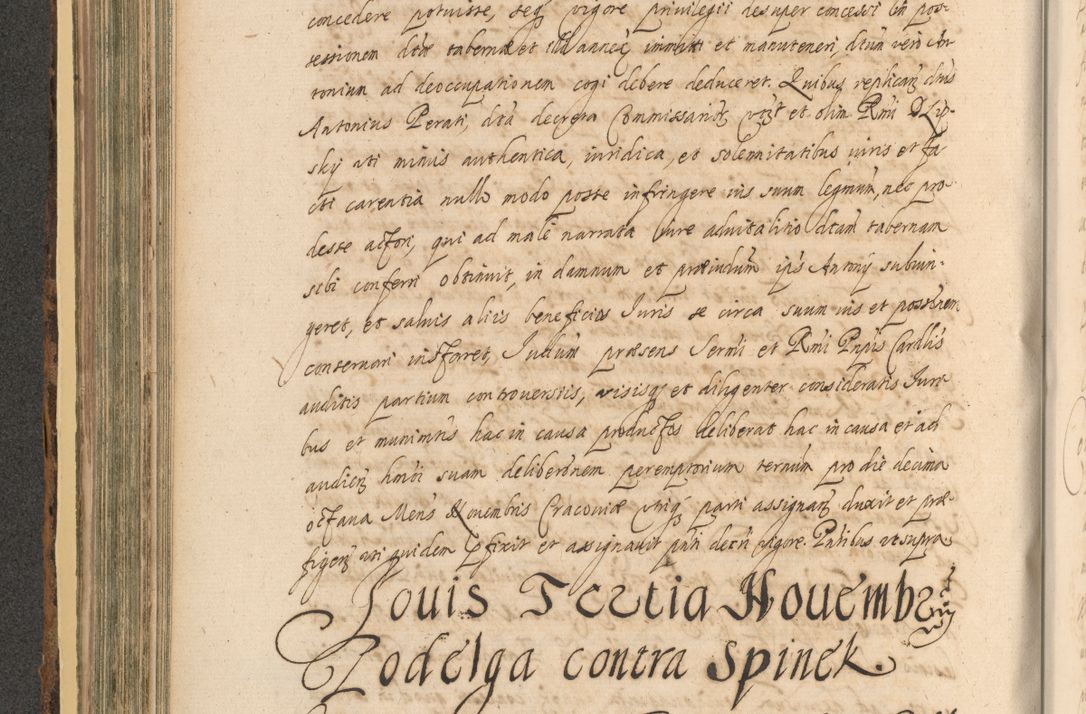 concedere potuisse, seq vigore privilegii desuper concessi in pos-
sessionem dtae tabernae et immitti et manuteneri dtum vero An-
tonium ad deoccupationem cogi debere deduceret. Quibus replicans dtus
Antonius Perati, dta decreta Commissarior et olim Rmi D Lip-
skÿ uti minus authentica, iuridica, et solemnitatibus iuris et fa-
cti carentia nullo modo posse infringere ius suum legmum, nec pro-
desse actori, qui ad male narrata Iure advitalitio dtam tabernam
sibi conferri obtinuit, in damnum et praeiudium ipsius Antonÿ subiun-
geret, et salvis aliis beneficiis Iuris se circa suum ius et possnem
conservari Iudium praesens Sermi et Rmi Pnpis Cardlis
auditis partium controversiis, visisq et diligenter consideratis Iuri-
bus et munimtis hac in causa productis deliberat hac in causa et ad
audien hmoi suam deliberonem peremptorium ternum pro die decima
octava Mens Novembris Cracoviae utriq parti assignan duxit et prae-
figen uti quidem pfixit et assignavit pnti decti vigore. Pntibus ut supra
Jouis Tertia Nouembr
Podelga contra Spinek.